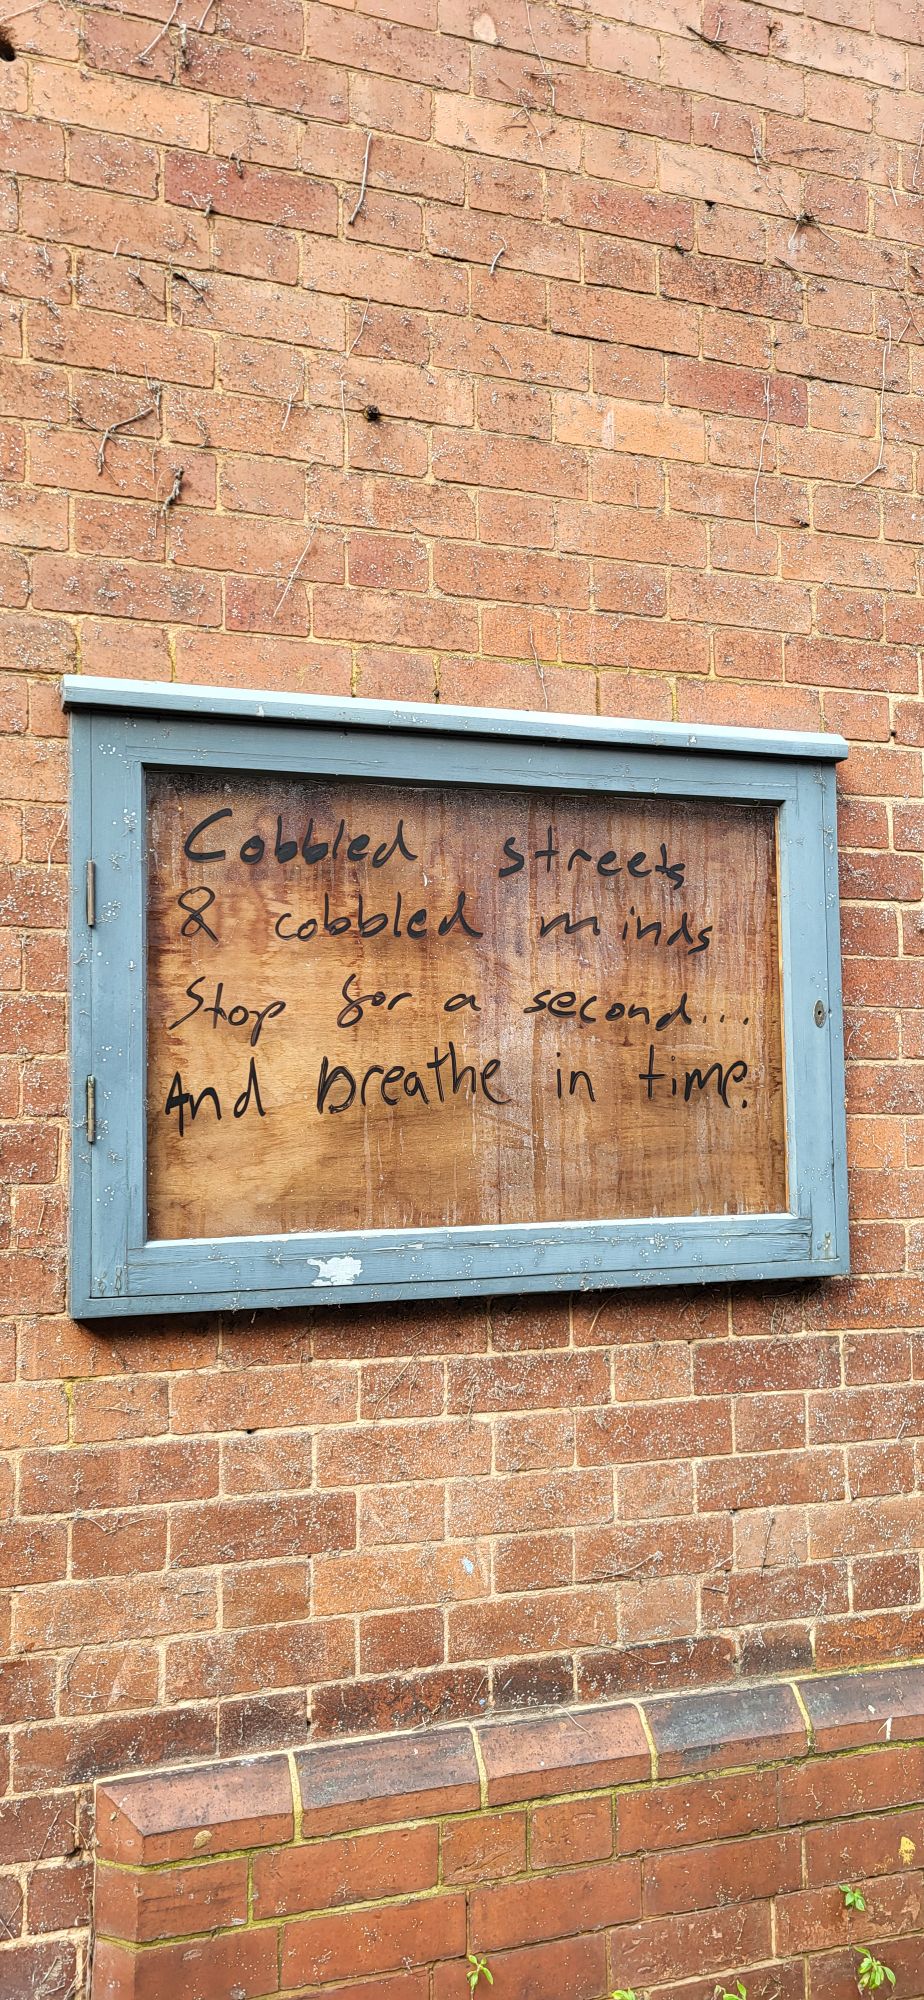 Cobbled streets
& cobbled minds
Stop for a second...
And breathe in time.